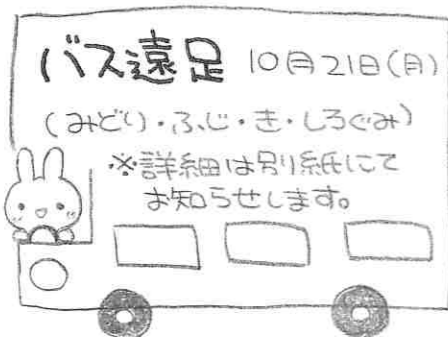 バス遠足 10月21日(月)
(みどり・ふじ・き・しろぐみ)
※詳細は別紙にて
お知らせします。